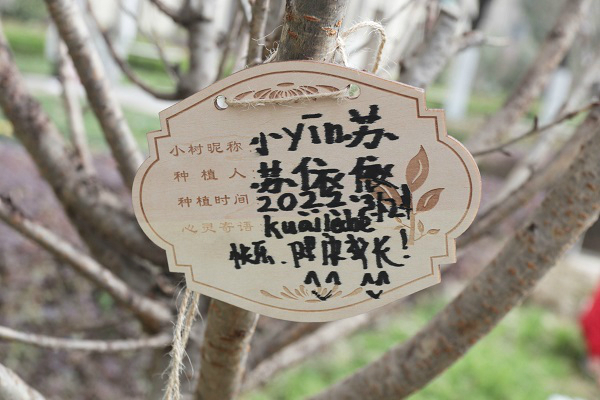 小树昵称: 小yīn苏
种植人: 苏依依
种植时间: 2022.3月21
心灵寄语: kuailede
快乐.健康成长!
^^ ^^